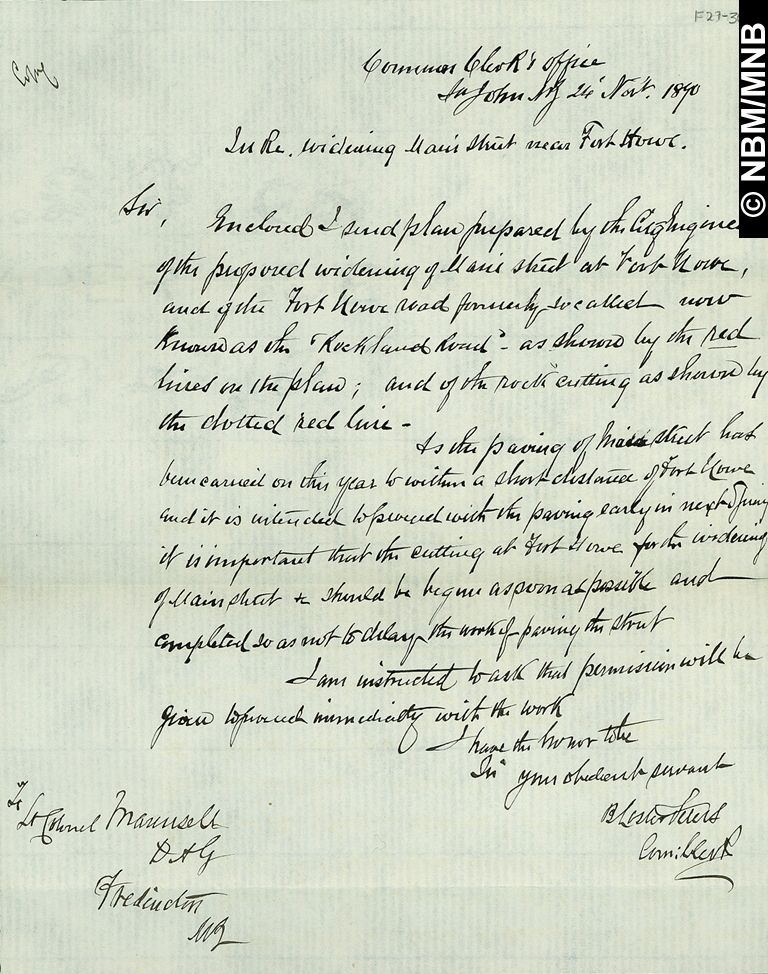 F27-3
© NBM/MNB
Copy
Common Clerk's office
St John NB 24' Nov. 1890
In Re. widening Main Street near Fort Howe.
Sir,
Enclosed I send plan prepared by the City Engineer
of the proposed widening of Main street at Fort Howe,
and of the Fort Howe road formerly so called now
known as the "Rockland Road" - as shown by the red
lines on the plan; and of the rock cutting as shown by
the dotted red line -
As the paving of Main street has
been carried on this year to within a short distance of Fort Howe
and it is intended to proceed with the paving early in next Spring
it is important that the cutting at Fort Howe for the widening
of Main street &c should be begun as soon as possible and
completed so as not to delay the work of paving the street
I am instructed to ask that permission will be
given to proceed immediately with the work
I have the honor to be
Sir your obedient servant
B Lester Peters
Com: Clerk
To
Lt Colonel Maunsell
D A G
Fredericton
NB